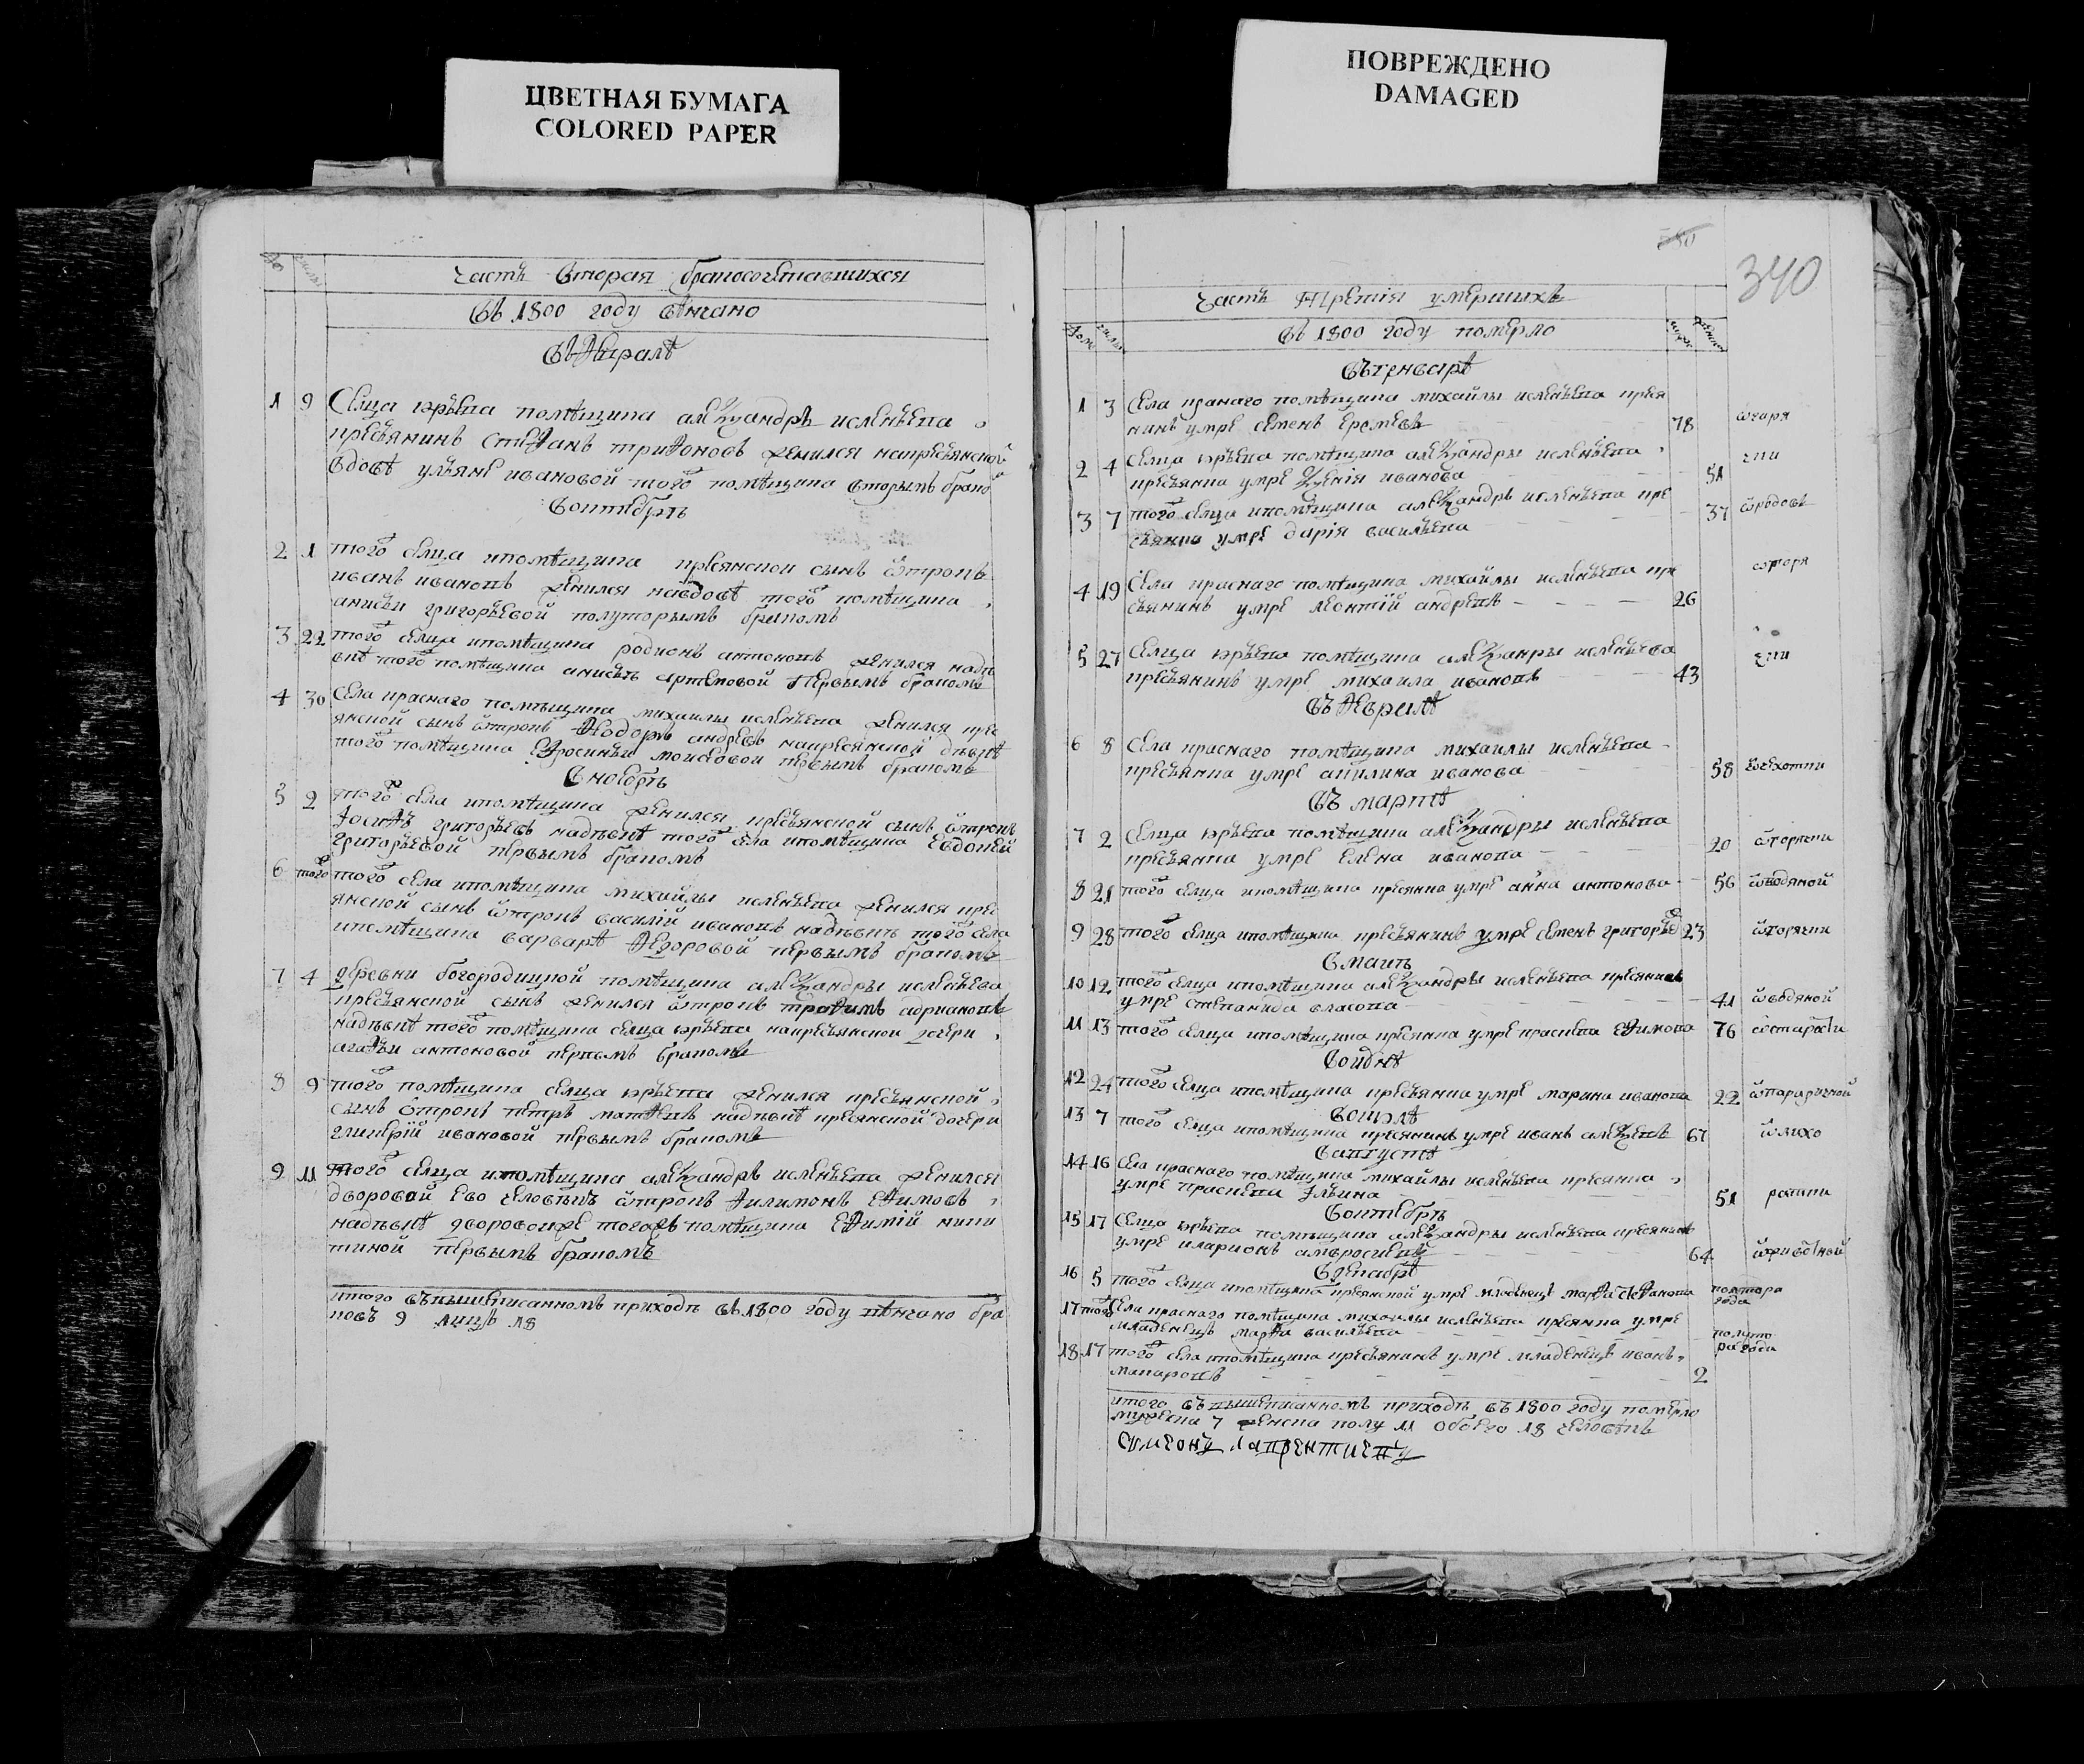 ЦВЕТНАЯ БУМАГА
COLORED PAPER
ПОВРЕЖДЕНО
DAMAGED
340
часть вторая бракосочетавшихся
въ 1800 году венчано
1 9 Селца юрьева помѣщика алеѯандръ исленьева
кресьянинъ стеѳанъ триѳоновъ женился накресьянской
вдовѣ ульяне ивановой того помѣщика вторымъ бракомъ
2 1 того селца ипомѣщика кресянской сынъ ѿтрокъ
иванъ ивановъ женился навдовѣ того помѣщика
анисьи григорьевой полуторымъ бракомъ
3 22 того селца ипомѣщика родионъ антоновъ женился надѣ
вкѣ того помѣщика анисьѣ артемовой первымъ бракомъ
4 30 села краснаго помѣщика михаилы исленьева женился крес
янской сынъ ѿтрокъ ѳедоръ андреевъ накресянской дѣвкѣ
того помѣщика моисеовой первымъ бракомъ
5 2 того села ипомѣщика женился кресьянской сынъ ѿтрокъ
григорьевъ надѣвкѣ того села ипомѣщика евдокеи
григорьевой первымъ бракомъ
6 того того села ипомѣщика михайлы исленьева женился крес
янской сынъ ѿтрокъ василій ивановъ надѣвкѣ того села
ипомѣщика варварѣ ѳедоровой первымъ бракомъ
7 4 деревни богородицкой помѣщика алеѯандры исленьева
кресьянской сынъ женился ѿтрокъ троѳимъ адриановъ
надѣвкѣ того помѣщика селца юрьева накресьянской дочери
агаѳьи антоновой первымъ бракомъ
8 9 того помѣщика селца юрьева женился кресьянской
сынъ ѿтрокъ петръ матѳеевъ надѣвкѣ кресянской дочери
гликерій ивановой первымъ бракомъ
9 11 того селца ипомѣщика алеѯандръ исленьева женился
дворовой ево человѣкъ ѿтрокъ ѳилимонъ еѳимовъ
надѣвкѣ дворовойже тогожъ помѣщика еѳимій ники
тиной первымъ бракомъ
итого въвышеписанномъ приходѣ въ 1800 году венчано бра
ковъ 9 лицъ 18
часть третія умершихъ
въ 1800 году померло
1 3 села краснаго помѣщика михайлы исленьева крея
нинъ умре семенъ еремеевъ 78
2 4 селца юрьева помѣщика алеѯандры исленьева
кресьянка умре ѯенія иванова 51
3 7 того селца ипомѣщика алеѯандръ исленьева кре
сьянка умре дарія васильева 37
4 19 села краснаго помѣщика михайлы исленьева кре
сьянинъ умре леонтій андреевъ 26
5 27 селца юрьева помѣщика исленьева
кресьянинъ умре михаила ивановъ 43
6 8 села краснаго помѣщика михаилы исленьева
кресьянка умре акилина иванова 58 ѿчехотки
въ мартѣ
7 2 селца юрьева помѣщика алеѯандры исленьева
кресьянка умре елена иванова 20 ѿгорячки
8 21 того селца ипомѣщика кресянка умре анна антонова 56 ѿводяной
9 28 того селца ипомѣщика кресьянинъ умре семенъ григорьев 23 ѿгорячки
10 12 того селца ипомѣщика алеѯандры исленьева
умре степанида власова 41 ѿводяной
11 13 того селца ипомѣщика кресянка умре праскева еѳимова 76 ѿстарости
12 24 того селца ипомѣщика кресьянка умре марина иванова 22
13 7 того селца ипомѣщика кресянинъ умре иванъ алеѯеевъ 67
14 16 села краснаго помѣщика михайлы исленьева кресянка
умре праскева ильина 51
15 17 селца юрьева помѣщика алеѯандры исленьева
умре иларионъ амвросиевъ 64
16 5 того селца ипомѣщика кресянской умре младенецъ марѳа стеѳанова полтора
года
17 того села краснаго помѣщика михаилы исленьева кресянка умре
младенецъ марѳа васильева полуто
ра года
18 17 того села ипомѣщика кресьянинъ умре младенецъ иванъ
макаровъ 2
итого въвышеписанномъ приходѣ въ 1800 году померло
мужеска 7 женска полу 11 обоего 18 человѣкъ